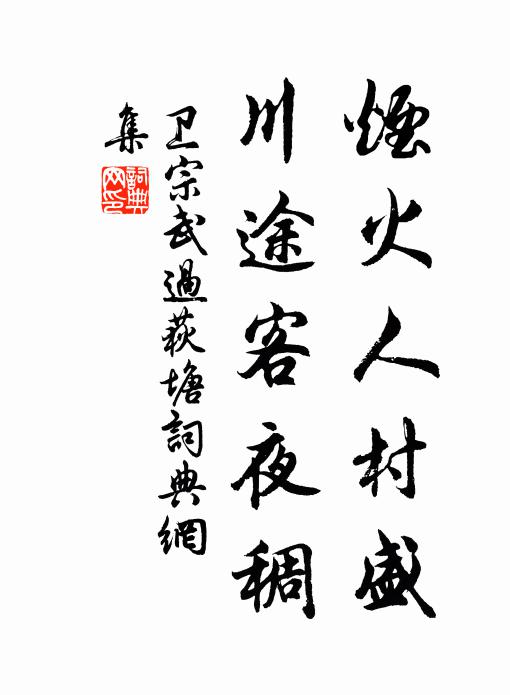 煙火人村盛
川途客夜稠
卫宗武過荻塘詞典網
集
詞典網印